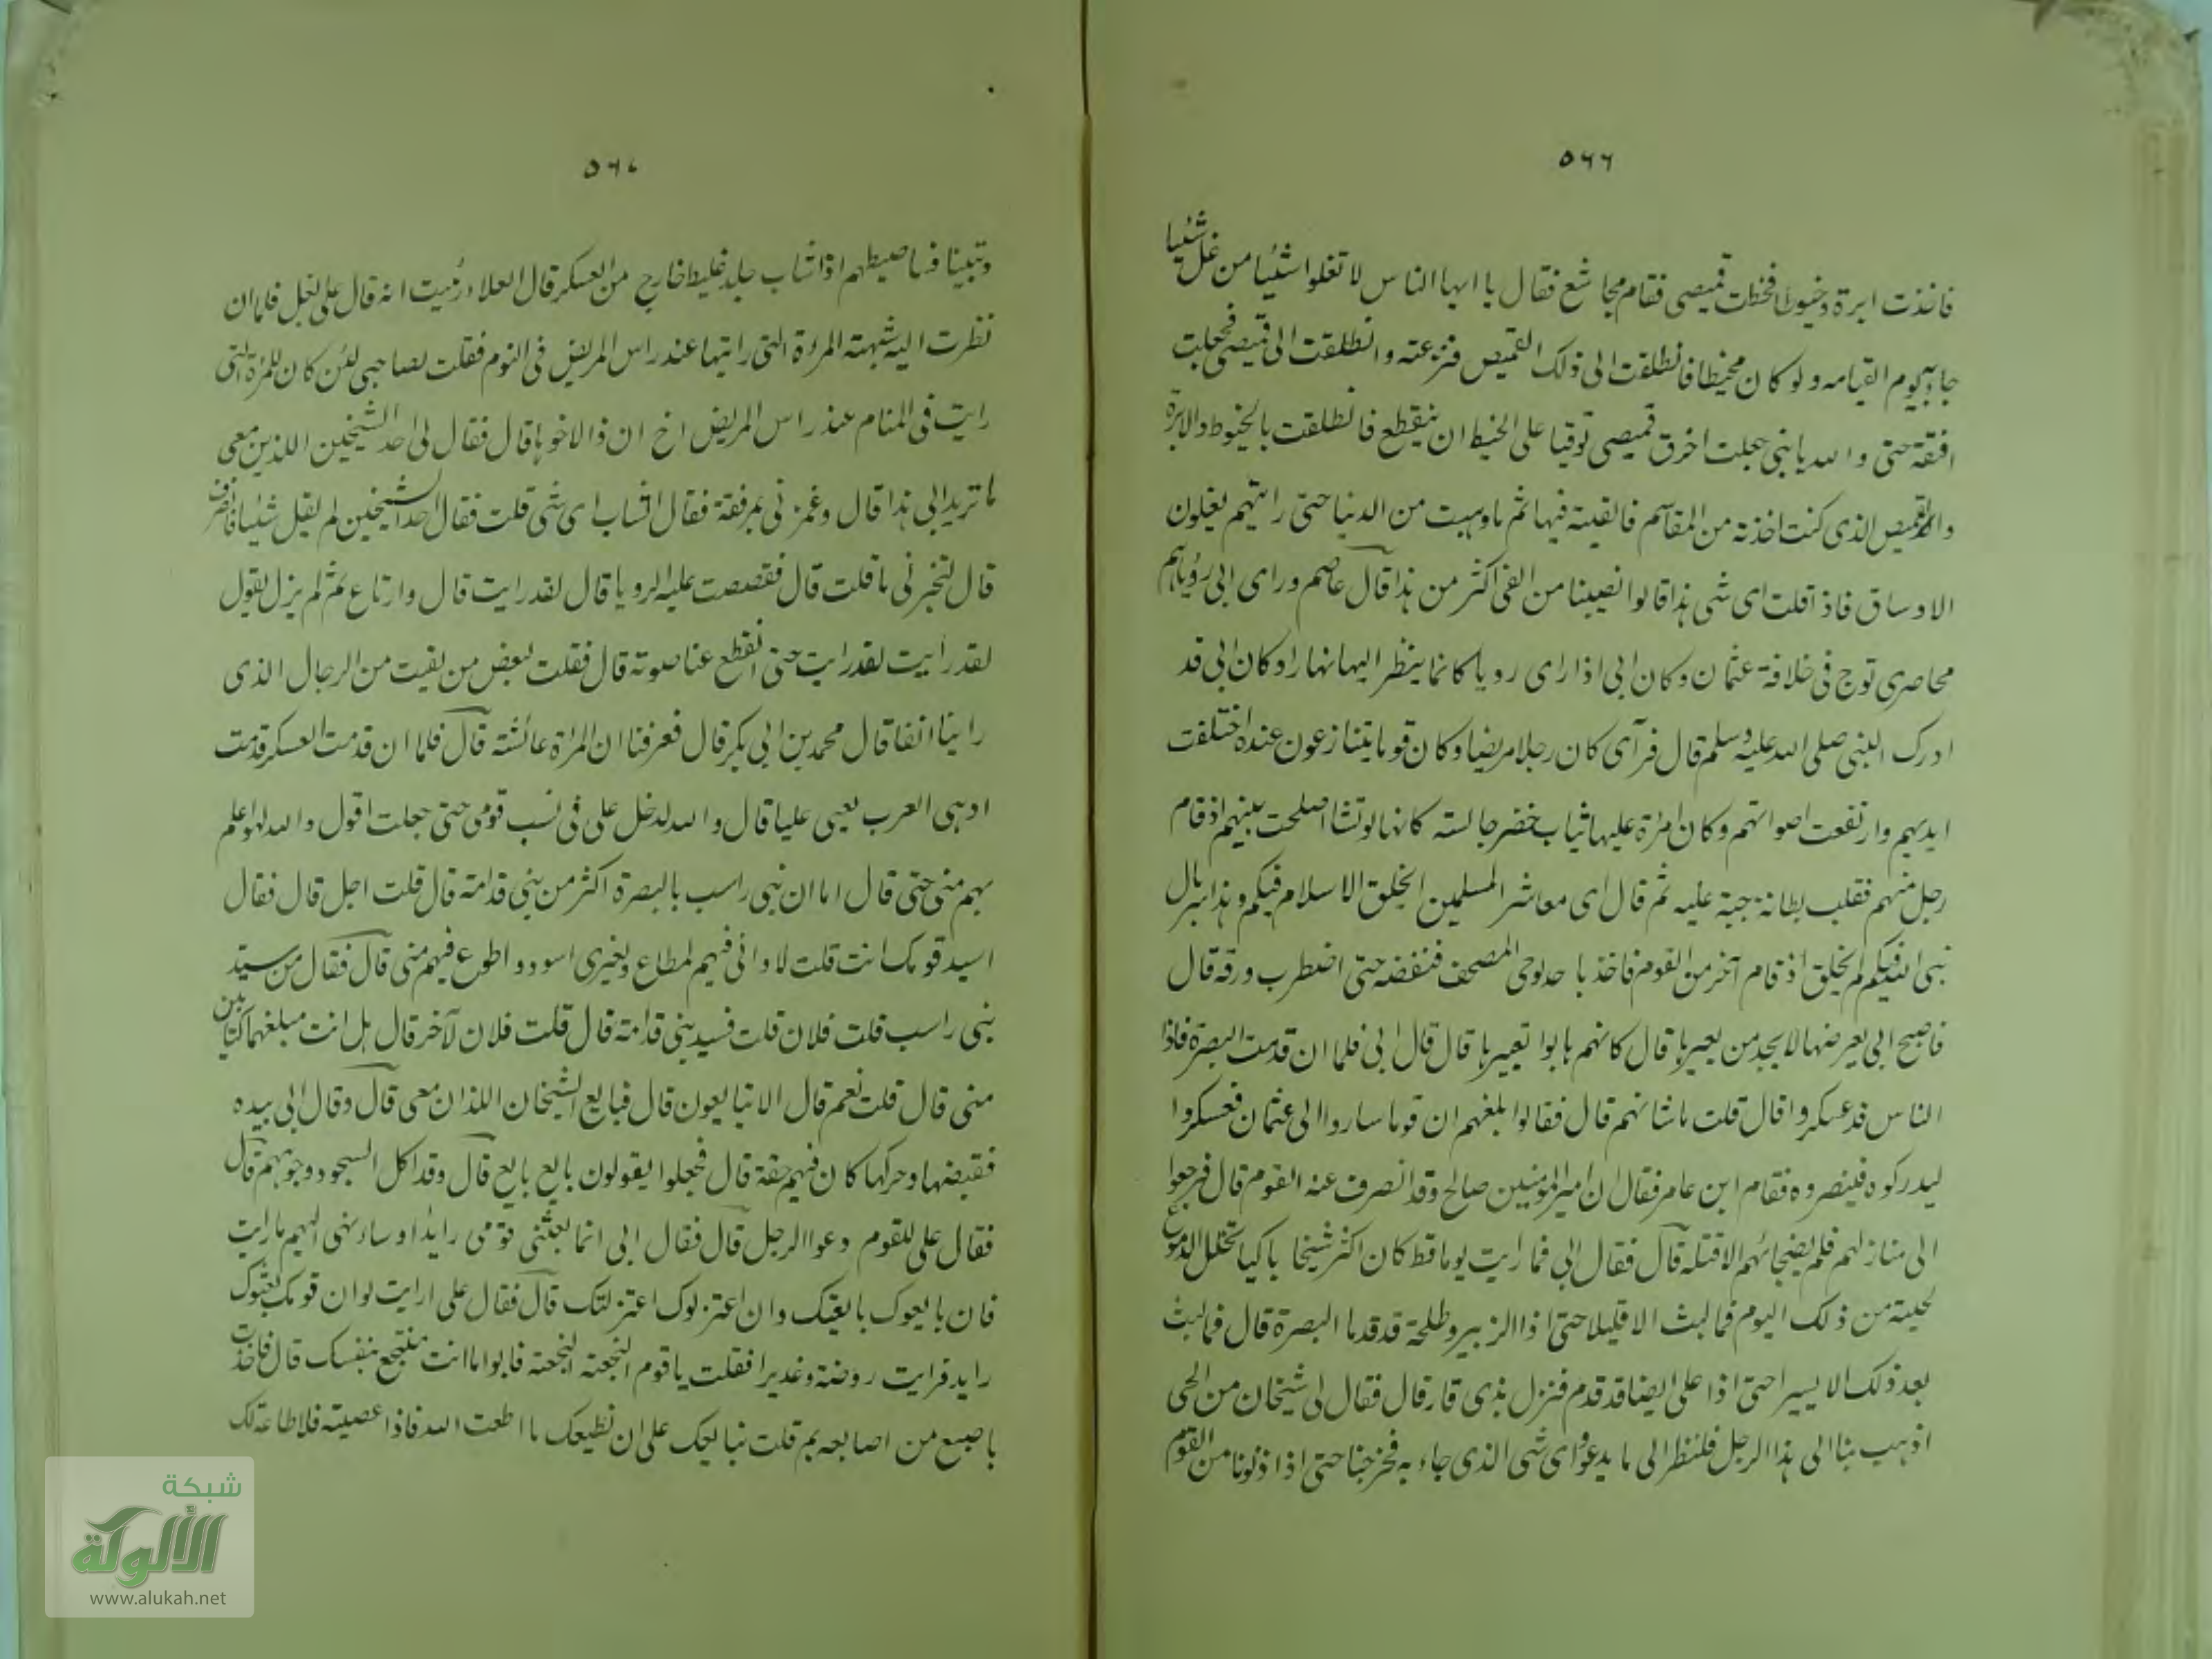 ٥٦٦
فاخذت ابرة وخيوطا فخطت قميصى فقام مجاشع فقال يا ايها الناس لا تغلوا شئيا من غل شئيا
جاء به يوم القيامه ولو كان مخيطا فانطلقت الى ذلك القميص فنزعته وانطلقت الى قميصى فجعلت
افتقه حتى والله يا بنى جعلت اخرق قميصى توقيا على الخيط ان ينقطع فانطلقت بالخيوط والابرة
والقميص الذى كنت اخذته من المقاسم فالقيته فيها ثم ما وهبت من الدنيا حتى رايتهم يغلون
الاوساق فاذا قلت اى شى هذا قالوا نصيبنا من الفى اكثر من هذا قال عاصم وراى ابى رؤيا هم
محاصرى توج فى خلافة عثمان وكان ابى اذا راى رويا كانما ينظر اليها نهارا وكان ابى قد
ادرك النبى صلى الله عليه وسلم قال فرآى كان رجلا مريضا وكان قوما يتنازعون عنده اختلفت
ايديهم وارتفعت اصواتهم وكان امرأة عليها ثياب خضر جالسته كانها لو تشا اصلحت بينهم اذ قام
رجل منهم فقلب بطانة جبة عليه ثم قال اى معاشر المسلمين ايخلق الاسلام فيكم وهذا سربال
نبى الله فيكم لم يخلق اذ قام آخر من القوم فاخذ باحد لوحى المصحف فنفضه حتى اضطرب ورقه قال
فاصبح ابى يعرضها لا يجد من يعبرها قال كانهم هابوا تعبيرها قال قال ابى فلما ان قدمت البصرة فاذا
الناس قد عسكروا قال قلت ما شانهم قال فقالوا بلغهم ان قوما ساروا الى عثمان فعسكروا
ليدركوه فينصروه فقام ابن عامر فقال ان امير المؤمنين صالح وقد انصرف عنه القوم قال فرجعوا
الى منازلهم فلم يفجأئهم الا قتله قال فقال ابى فما رايت يوما قط كان اكثر شيخا باكيا تخلل الدموع
لحيته من ذلك اليوم فما لبث الا قليلا حتى اذا الزبير وطلحة قد قدما البصرة قال فما لبث
بعد ذلك الا يسيرا حتى اذا على ايضا قد قدم فنزل بذى قار قال فقال لى شيخان من الحى
اذهب بنا الى هذا الرجل فلننظر الى ما يدعوا واى شى الذى جاء به فخرجنا حتى اذا دنونا من القوم
٥٦٧
وتبينا فساطيطهم اذا شاب جلد غليظ خارج من العسكر قال العلاء رئيت انه قال على بغل فلما ان
نظرت اليه شبهته المرءة التى رايتها عند راس المريض فى النوم فقلت لصاحبى لئن كان للمرئة التى
رايت فى المنام عند راس المريض اخ ان ذا لاخوها قال فقال لى احد الشيخين اللذين معى
ما تريد الى هذا قال وغمزنى بمرفقة فقال الشاب اى شى قلت فقال احد الشيخين لم يقل شئيا فانصرف
قال لتخبرنى ما قلت قال فقصصت عليه الرويا قال لقد رايت قال وارتاع ثم لم يزل يقول
لقد رايت لقد رايت حتى انقطع عنا صوته قال فقلت لبعض من لقيت من الرجال الذى
راينا انفا قال محمد بن ابى بكر قال فعرفنا ان المراة عائشته قال فلما ان قدمت العسكر قدمت
ادهى العرب يعنى عليا قال والله لدخل على فى نسب قومى حتى جعلت اقول والله لهو اعلم
بهم منى حتى قال اما ان بنى راسب بالبصرة اكثر من بنى قدامة قال قلت اجل قال فقال
اسيد قومك انت قلت لا وانى فيهم لمطاع ولغيرى اسود واطوع فيهم منى قال فقال من سيد
بنى راسب قلت فلان قلت فسيد بنى قدامة قال قلت فلان لآخر قال هل انت مبلغهما كتابين
منى قال قلت نعم قال الا تبايعون قال فبايع الشيخان اللذان معى قال وقال ابى بيده
فقبضها وحركها كان فيهم خفة قال فجعلوا يقولون بايع بايع قال وقد اكل السجود وجوههم قال
فقال على للقوم دعوا الرجل قال فقال ابى انما بعثنى قومى رايدا وسانهى اليهم ما رايت
فان بايعوك بايعتك وان اعتزلوك اعتزلتك قال فقال على ارايت لو ان قومك بعثوك
رايد فرايت روضة وغديرا فقلت يا قوم النجعته النجعته فابوا ما انت منتجع بنفسك قال فاخذت
باصبع من اصابعه ثم قلت نبايعك على ان نطيعك ما اطعت الله فاذا عصيته فلا طاعة لك
شبكة
الألوكة
www.alukah.net